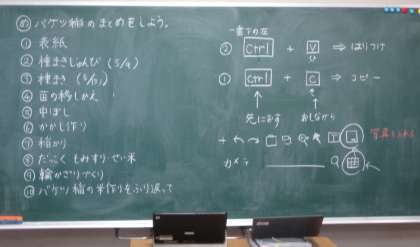 め バケツ稲のまとめをしよう。
① 表紙
② 種まきじゅんび (5/4)
③ 種まき (5/11)
④ 苗の移しかえ
⑤ 中ぼし
⑥ かかし作り
⑦ 稲かり
⑧ だっこく もみすり・せい米
⑨ 輪かざりづくり
⑩ バケツ稲の米作りをふり返って
一番下の左
② Ctrl + V ⇒ はりつけ
① Ctrl + C ⇒ コピー
先におす おしながら
写真を入れる
カメラ